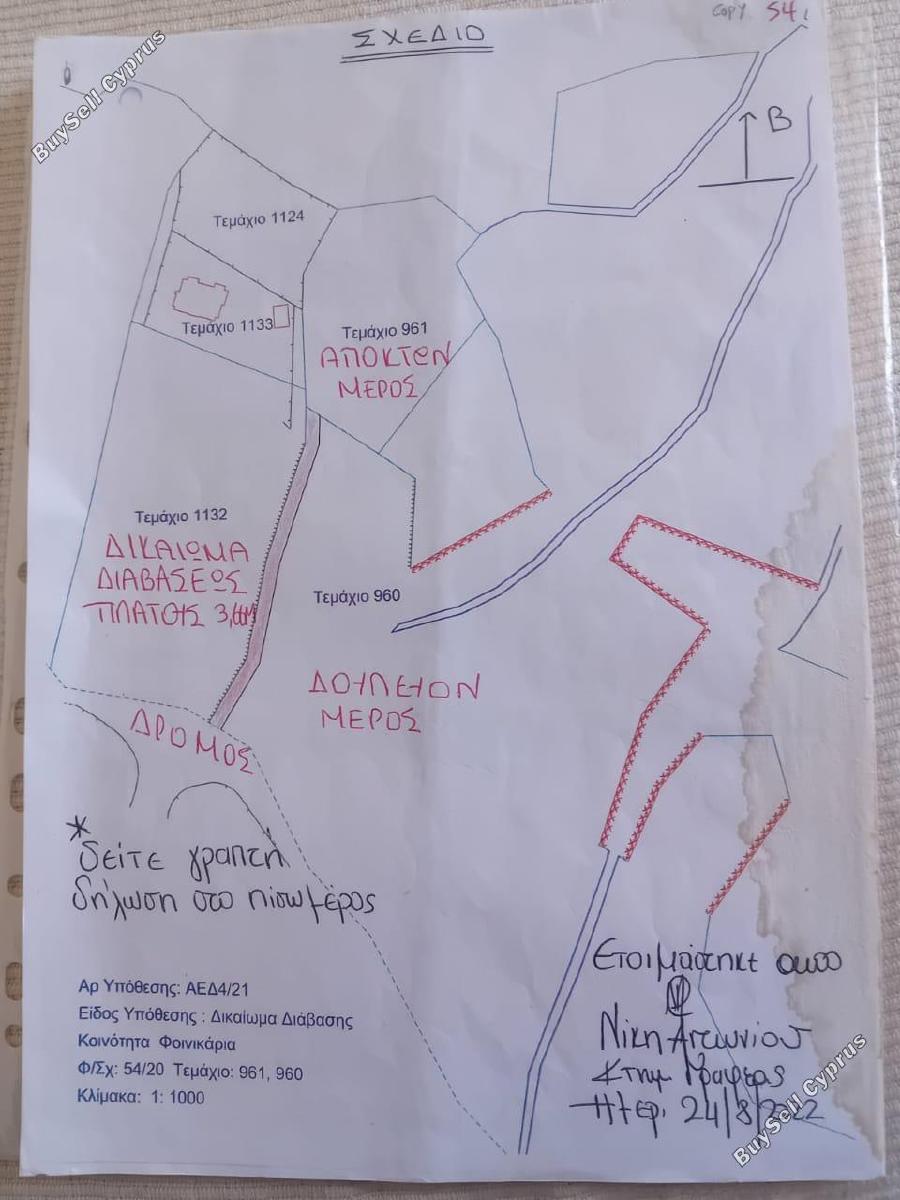 COPY 54
ΣΧΕΔΙΟ
BuySell Cyprus
Β
Τεμάχιο 1124
Τεμάχιο 1133
Τεμάχιο 961
ΑΠΟΚΤΩΝ
ΜΕΡΟΣ
Τεμάχιο 1132
ΔΙΚΑΙΩΜΑ
ΔΙΑΒΑΣΕΩΣ
ΠΛΑΤΟΥΣ 3,
Τεμάχιο 960
ΔΟΥΛΕΥΟΝ
ΜΕΡΟΣ
ΔΡΟΜΟΣ
* δείτε γραπτή
δήλωση στο πίσω μέρος
Αρ Υπόθεσης: ΑΕΔ4/21
Είδος Υπόθεσης : Δικαίωμα Διάβασης
Κοινότητα Φοινικάρια
Φ/Σχ: 54/20 Τεμάχιο: 961, 960
Κλίμακα: 1: 1000
Ετοιμάστηκε από
Νίκη Αντωνίου
Κτημ Γραφέας
Ημερ. 24/8/2022
BuySell Cyprus